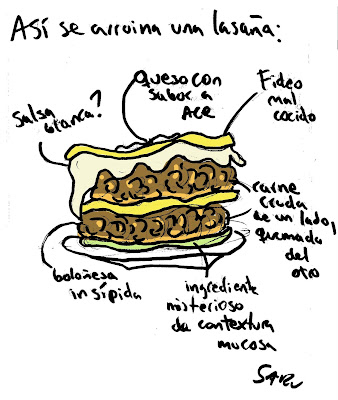 Así se arruina una lasaña:
Queso con
sabor a
Ace
Fideo
mal
cocido
Salsa
blanca?
carne
cruda
de un lado,
quemada
del
otro
boloñesa
insípida
ingrediente
misterioso
da contextura
mucosa